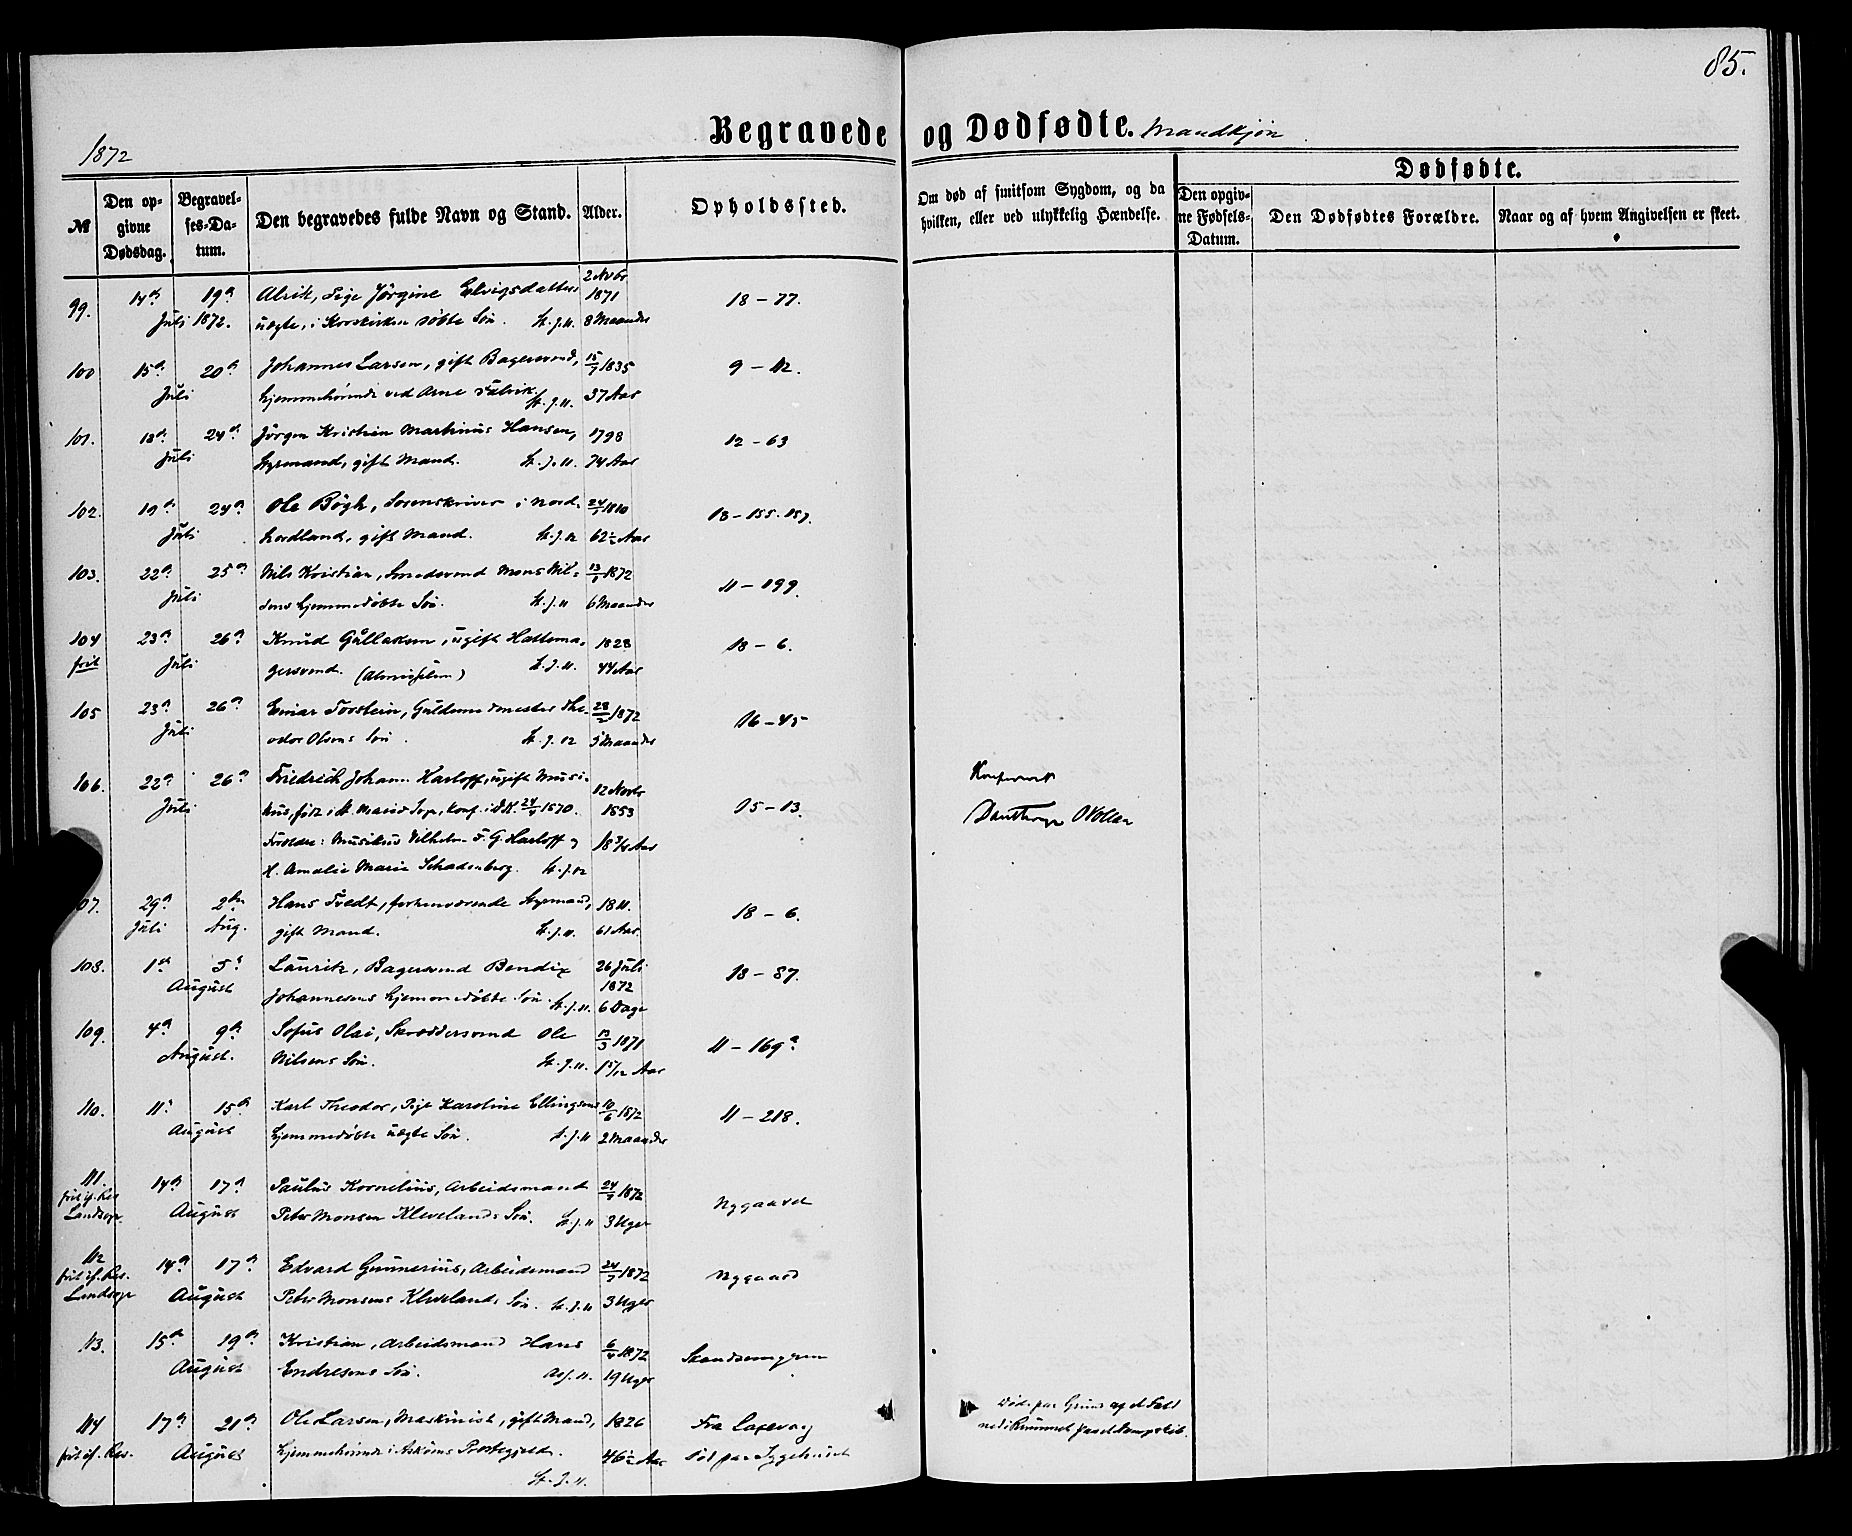 85.
1872
Begravede og Dødfødte. Mandkjøn
№
Den opgivne Dødsdag.
Begravelses-Datum.
Den begravedes fulde Navn og Stand.
Alder.
Opholdssted.
Om død af smitsom Sygdom, og da hvilken, eller ved ulykkelig Hændelse.
Dødfødte.
Den opgivne Fødsels-Datum.
Den Dødfødtes Forældre.
Naar og af hvem Angivelsen er skeet.
99. 14de 19de Alrik, Pige Jørgine Elvigsdatters 2 Novbr 1871 18 - 77.
Juli 1872. uægte, i Korskirken døbte Søn. St. J. 11. 8 Maander
100 15de 20de Johannes Larsen, gift Bagersvend, 15/7 1835 9 - 12.
Juli hjemmehørende ved Arne Fabrik St. J. 11. 37 Aar
101. 18de 24de Jørgen Kristian Martinus Hansen, 1798 12 - 63
Juli Styrmand, gift Mand. St. J. 11. 74 Aar
102. 19de 24de Ole Bøgh, Sorenskriver i Nord- 1810 18 - 155. 157.
Juli hordland, gift Mand. St. J. 12 62½ Aar
103. 22de 25de Nils Kristian, Smedsvend Mons Nil- 13/1 1872 11 - 199.
Juli sens hjemmedøbte Søn. St. J. 11 6 Maander
104 23de 26de Knud Gullaksen, ugift Hattema- 1828 18 - 6.
frit Juli gersvend. St. J. 11. 44 Aar
105 23de 26de Einar Torstein, Guldsmedmester The- 28/2 1872 16 - 45
Juli odor Olsens Søn. St. J. 12 5 Maander
106. 22de 26de Friedrich Johann Harloff, ugift Musi- 12 Novbr
Juli kus, født i St. Maria Sogn, konf. i DK. 24/4 1870. 1853 15 - 13.
Forældre: Musikus Vilhelm F. G. Harloff og 18 3/4 Aar
H. Amalie Marie Schadenberg. St. J. 12
107. 29de 2den Hans Tvedt, forhenværende Styrmand, 1811. 18 - 6.
Juli Aug. gift Mand. St. J. 11. 61 Aar.
108. 1ste 5te Laurits, Bagersvend Bendix 26 Juli 1872 18 - 87.
August Johannesens hjemmedøbte Søn. St. J. 11. 6 Dage
109. 4de 9de Sofus Olai, Skræddersvend Ole 1871 11 - 169a
August. Nilsens Søn. St. J. 11. 1 5/12 Aar
110. 11te 15de Karl Theodor, Pige Karoline Ellingsens 10/6 1872 11 - 218.
August hjemmedøbte uægte Søn. St. J. 11 2 Maander
111. 14de 17de Paulus Kornelius, Arbeidsmand 24/7 1872 Nygaard
frit if. Res Landsogn August Peter Monsen Klevelands Søn. St. J. 11 3 Uger
112 14de 17de Edvard Gunnerius, Arbeidsmand 24/7 1872 Nygaard
frit if. Res. Landsogn August Peter Monsens Klevelands Søn. St. J. 11 3 Uger
113. 15de 19de Kristian, Arbeidsmand Hans 6/4 1872
August Endresens Søn. Ass. 11. 19 Uger
114 17de 21de Ole Larsen, Maskinist, gift Mand, 1826 Fra Laxevaag
frit if. Res. August hjemmehørende i Askøens Præstegjeld. 46½ Aar død paa Sygehuset
St. J. 11.
Død paa Grund af et Fald
ned i Rummet paa et Dampskib.